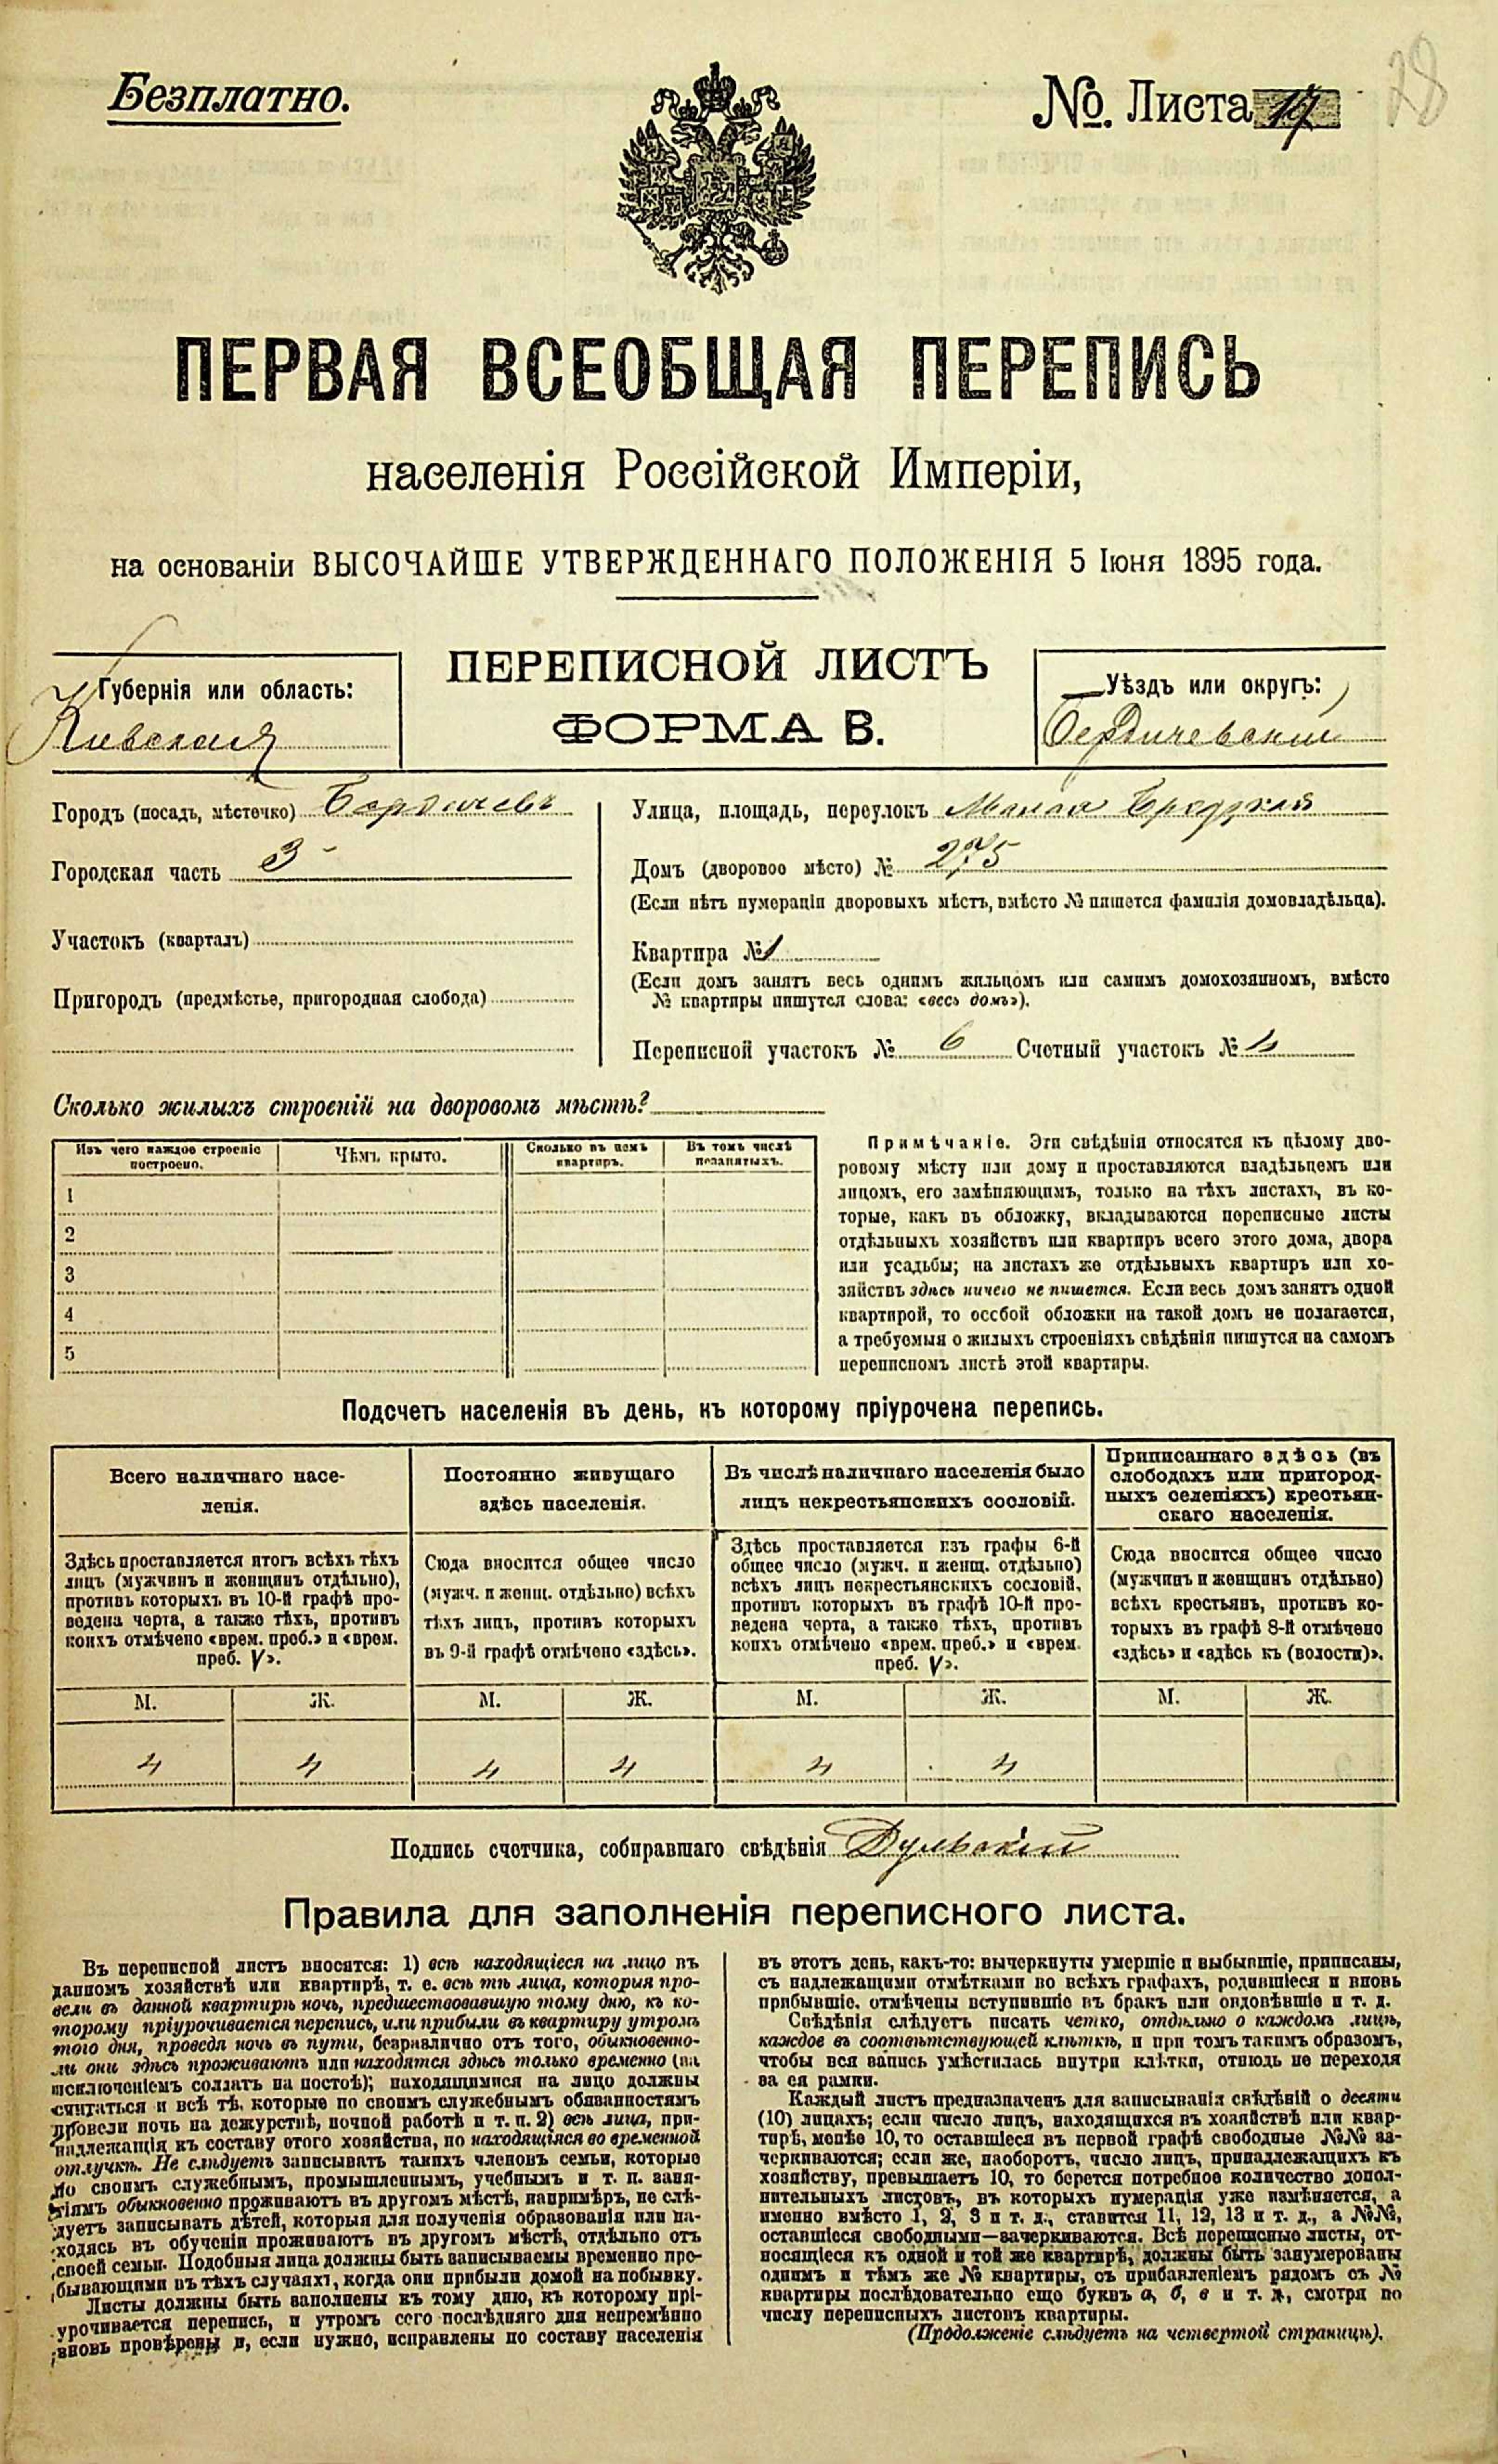 Безплатно.
№. Листа 17
28
ПЕРВАЯ ВСЕОБЩАЯ ПЕРЕПИСЬ
населенія Россійской Имперіи,
на основаніи ВЫСОЧАЙШЕ УТВЕРЖДЕННАГО ПОЛОЖЕНІЯ 5 Іюня 1895 года.
Губернія или область:
Кіевская
ПЕРЕПИСНОЙ ЛИСТЪ
ФОРМА В.
Уѣздъ или округъ:
Бердичевскій
Городъ (посадъ, мѣстечко) Бердичевъ
Городская часть 3
Участокъ (кварталъ)
Пригородъ (предмѣстье, пригородная слобода)
Улица, площадь, переулокъ Малая Бродская
Домъ (дворовое мѣсто) № 275
(Если нѣтъ нумераціи дворовыхъ мѣстъ, вмѣсто № пишется фамилія домовладѣльца).
Квартира № 1
(Если домъ занятъ весь однимъ жильцомъ или самимъ домохозяиномъ, вмѣсто
№ квартиры пишутся слова: «весь домъ»).
Переписной участокъ № 6 Счетный участокъ №
Сколько жилыхъ строеній на дворовомъ мѣстѣ?
Изъ чего каждое строеніе
построено.
Чѣмъ крыто.
Сколько въ немъ
квартиръ.
Въ томъ числѣ
незанятыхъ.
1
2
3
4
5
Примѣчаніе. Эти свѣдѣнія относятся къ цѣлому дво-
ровому мѣсту или дому и проставляются владѣльцемъ или
лицомъ, его замѣняющимъ, только на тѣхъ листахъ, въ ко-
торые, какъ въ обложку, вкладываются переписные листы
отдѣльныхъ хозяйствъ или квартиръ всего этого дома, двора
или усадьбы; на листахъ же отдѣльныхъ квартиръ или хо-
зяйствъ здѣсь ничего не пишется. Если весь домъ занятъ одной
квартирой, то особой обложки на такой домъ не полагается,
а требуемыя о жилыхъ строеніяхъ свѣдѣнія пишутся на самомъ
переписномъ листѣ этой квартиры.
Подсчетъ населенія въ день, къ которому пріурочена перепись.
Всего наличнаго насе-
ленія.
Здѣсь проставляется итогъ всѣхъ тѣхъ
лицъ (мужчинъ и женщинъ отдѣльно),
противъ которыхъ въ 10-й графѣ про-
ведена черта, а также тѣхъ, противъ
коихъ отмѣчено «врем. преб.» и «врем.
преб. V».
Постоянно живущаго
здѣсь населенія.
Сюда вносится общее число
(мужч. и женщ. отдѣльно) всѣхъ
тѣхъ лицъ, противъ которыхъ
въ 9-й графѣ отмѣчено «здѣсь».
Въ числѣ наличнаго населенія было
лицъ некрестьянскихъ сословій.
Здѣсь проставляется изъ графы 6-й
общее число (мужч. и женщ. отдѣльно)
всѣхъ лицъ некрестьянскихъ сословій,
противъ которыхъ въ графѣ 10-й про-
ведена черта, а также тѣхъ, противъ
коихъ отмѣчено «врем. преб.» и «врем.
преб. V».
Приписаннаго здѣсь (въ
слободахъ или пригород-
ныхъ селеніяхъ) крестьян-
скаго населенія.
Сюда вносится общее число
(мужчинъ и женщинъ отдѣльно)
всѣхъ крестьянъ, противъ ко-
торыхъ въ графѣ 8-й отмѣчено
«здѣсь» и «здѣсь къ (волости)».
М. Ж. М. Ж. М. Ж. М. Ж.
4 4 4 4 4 4
Подпись счетчика, собиравшаго свѣдѣнія
Правила для заполненія переписного листа.
Въ переписной листъ вносятся: 1) всѣ находящіеся на лицо въ
данномъ хозяйствѣ или квартирѣ, т. е. всѣ тѣ лица, которыя про-
вели въ данной квартирѣ ночь, предшествовавшую тому дню, къ ко-
торому пріурочивается перепись, или прибыли въ квартиру утромъ
того дня, проведя ночь въ пути, безразлично отъ того, обыкновенно-
ли они здѣсь проживаютъ или находятся здѣсь только временно (за
исключеніемъ солдатъ на постоѣ); находящимися на лицо должны
считаться и всѣ тѣ, которые по своимъ служебнымъ обязанностямъ
провели ночь на дежурствѣ, ночной работѣ и т. п. 2) всѣ лица, при-
надлежащія къ составу этого хозяйства, но находящіяся во временной
отлучкѣ. Не слѣдуетъ записывать такихъ членовъ семьи, которые
по своимъ служебнымъ, промышленнымъ, учебнымъ и т. п. заня-
тіямъ обыкновенно проживаютъ въ другомъ мѣстѣ, напримѣръ, не слѣ-
дуетъ записывать дѣтей, которыя для полученія образованія или на-
ходясь въ обученіи проживаютъ въ другомъ мѣстѣ, отдѣльно отъ
своей семьи. Подобныя лица должны быть записываемы временно пре-
бывающими въ тѣхъ случаяхъ, когда они прибыли домой на побывку.
Листы должны быть заполнены къ тому дню, къ которому прі-
урочивается перепись, и утромъ сего послѣдняго дня непремѣнно
вновь провѣрены и, если нужно, исправлены по составу населенія
въ этотъ день, какъ-то: вычеркнуты умершіе и выбывшіе, приписаны,
съ надлежащими отмѣтками во всѣхъ графахъ, родившіеся и вновь
прибывшіе, отмѣчены вступившіе въ бракъ или овдовѣвшіе и т. д.
Свѣдѣнія слѣдуетъ писать четко, отдѣльно о каждомъ лицѣ,
каждое въ соотвѣтствующей клѣткѣ, и при томъ такимъ образомъ,
чтобы вся запись умѣстилась внутри клѣтки, отнюдь не переходя
за ея рамки.
Каждый листъ предназначенъ для записыванія свѣдѣній о десяти
(10) лицахъ; если число лицъ, находящихся въ хозяйствѣ или квар-
тирѣ, менѣе 10, то оставшіеся въ первой графѣ свободные №№ за-
черкиваются; если же, наоборотъ, число лицъ, принадлежащихъ къ
хозяйству, превышаетъ 10, то берется потребное количество допол-
нительныхъ листовъ, въ которыхъ нумерація уже измѣняется, а
именно вмѣсто 1, 2, 3 и т. д., ставится 11, 12, 13 и т. д., а №№,
оставшіеся свободными—зачеркиваются. Всѣ переписные листы, от-
носящіеся къ одной и той же квартирѣ, должны быть занумерованы
однимъ и тѣмъ же № квартиры, съ прибавленіемъ рядомъ съ №
квартиры послѣдовательно еще буквъ а, б, в и т. д., смотря по
числу переписныхъ листовъ квартиры.
(Продолженіе слѣдуетъ на четвертой страницѣ).